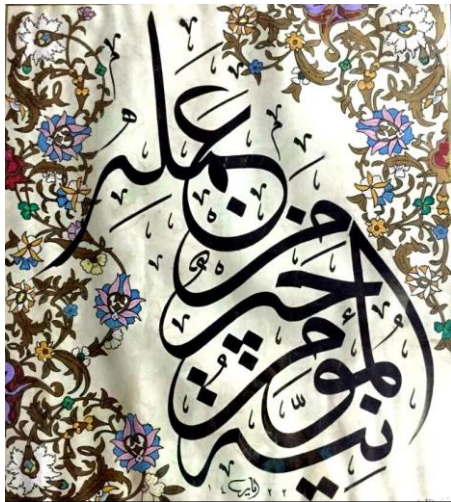 نية المؤمن خير من عمله